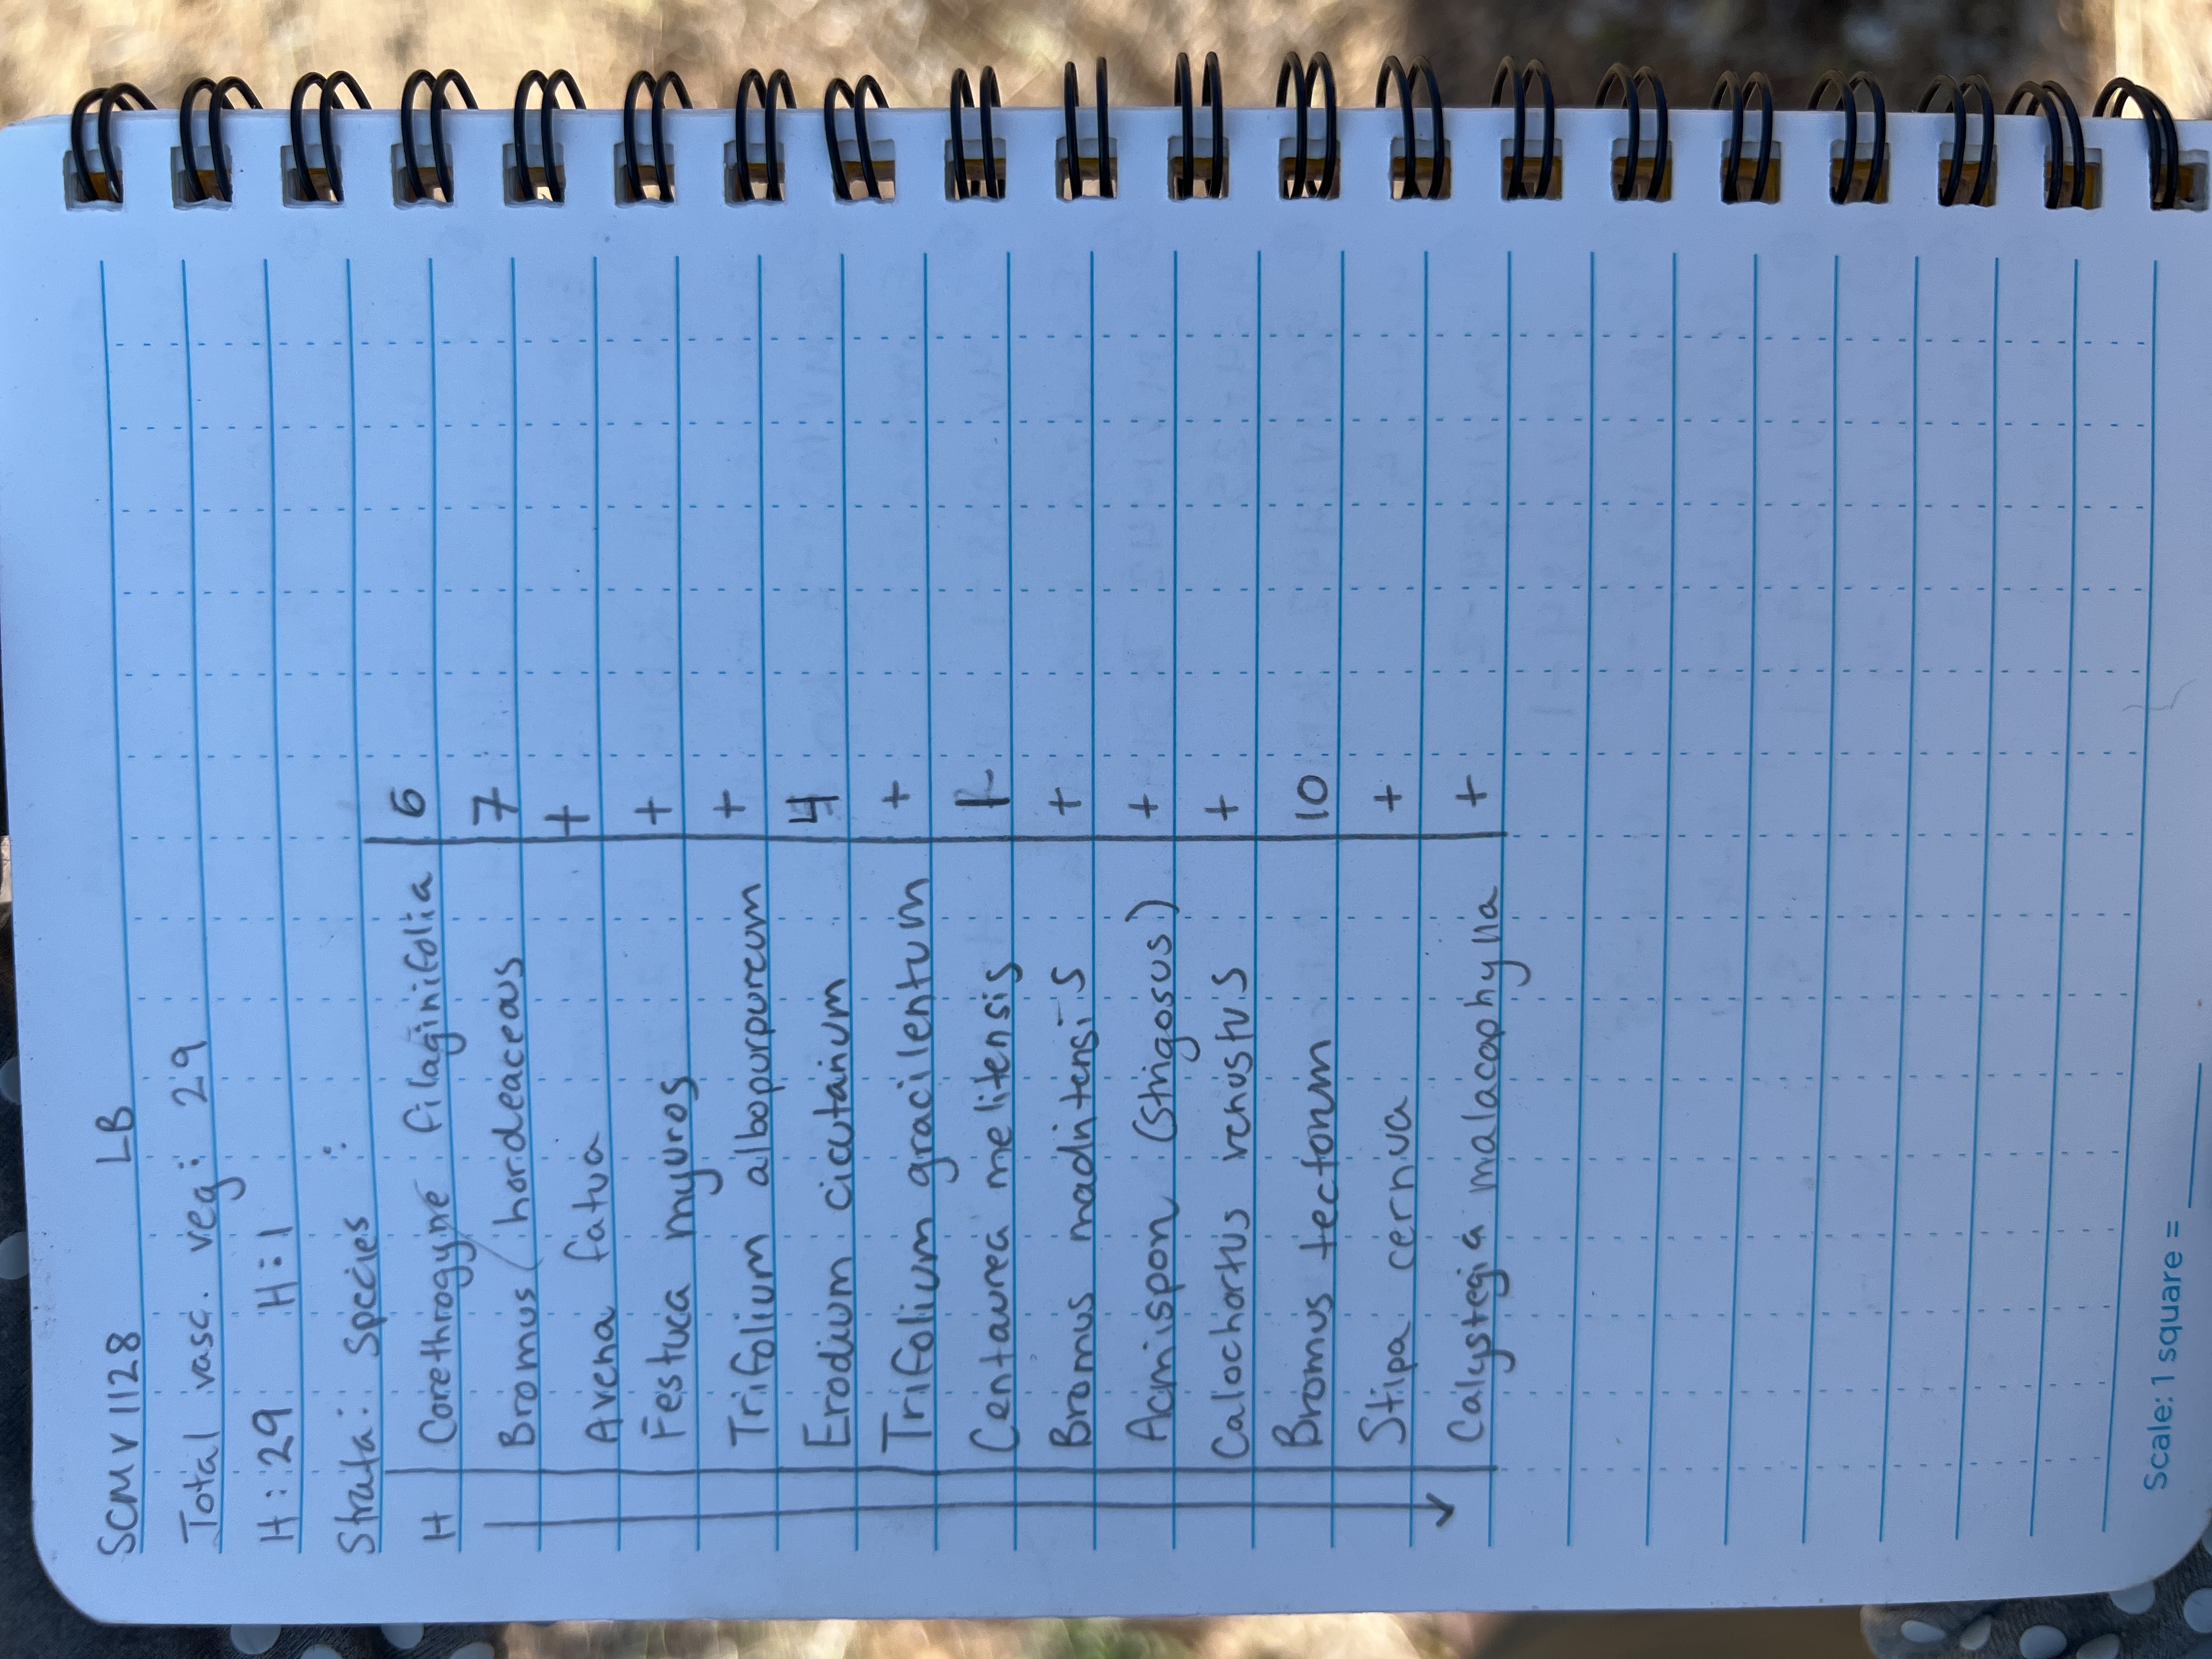 SCMV1128 LB
Total vasc. veg: 29
H: 29 H: 1
Strata: Species :
H Corethrogyne filaginifolia 6
Bromus hordeaceous 7
Avena fatua +
Festuca myuros +
Trifolium albopurpureum +
Erodium cicutarium 4
Trifolium gracilentum +
Centaurea melitensis
Bromus madritensis +
Acmispon (strigosus) +
Calochortus venustus +
Bromus tectorum 10
Stipa cernua +
Calystegia malacophylla +
Scale: 1 square =